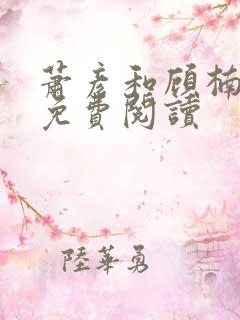 蕭彦和顧楠
免費閱讀
陸華勇